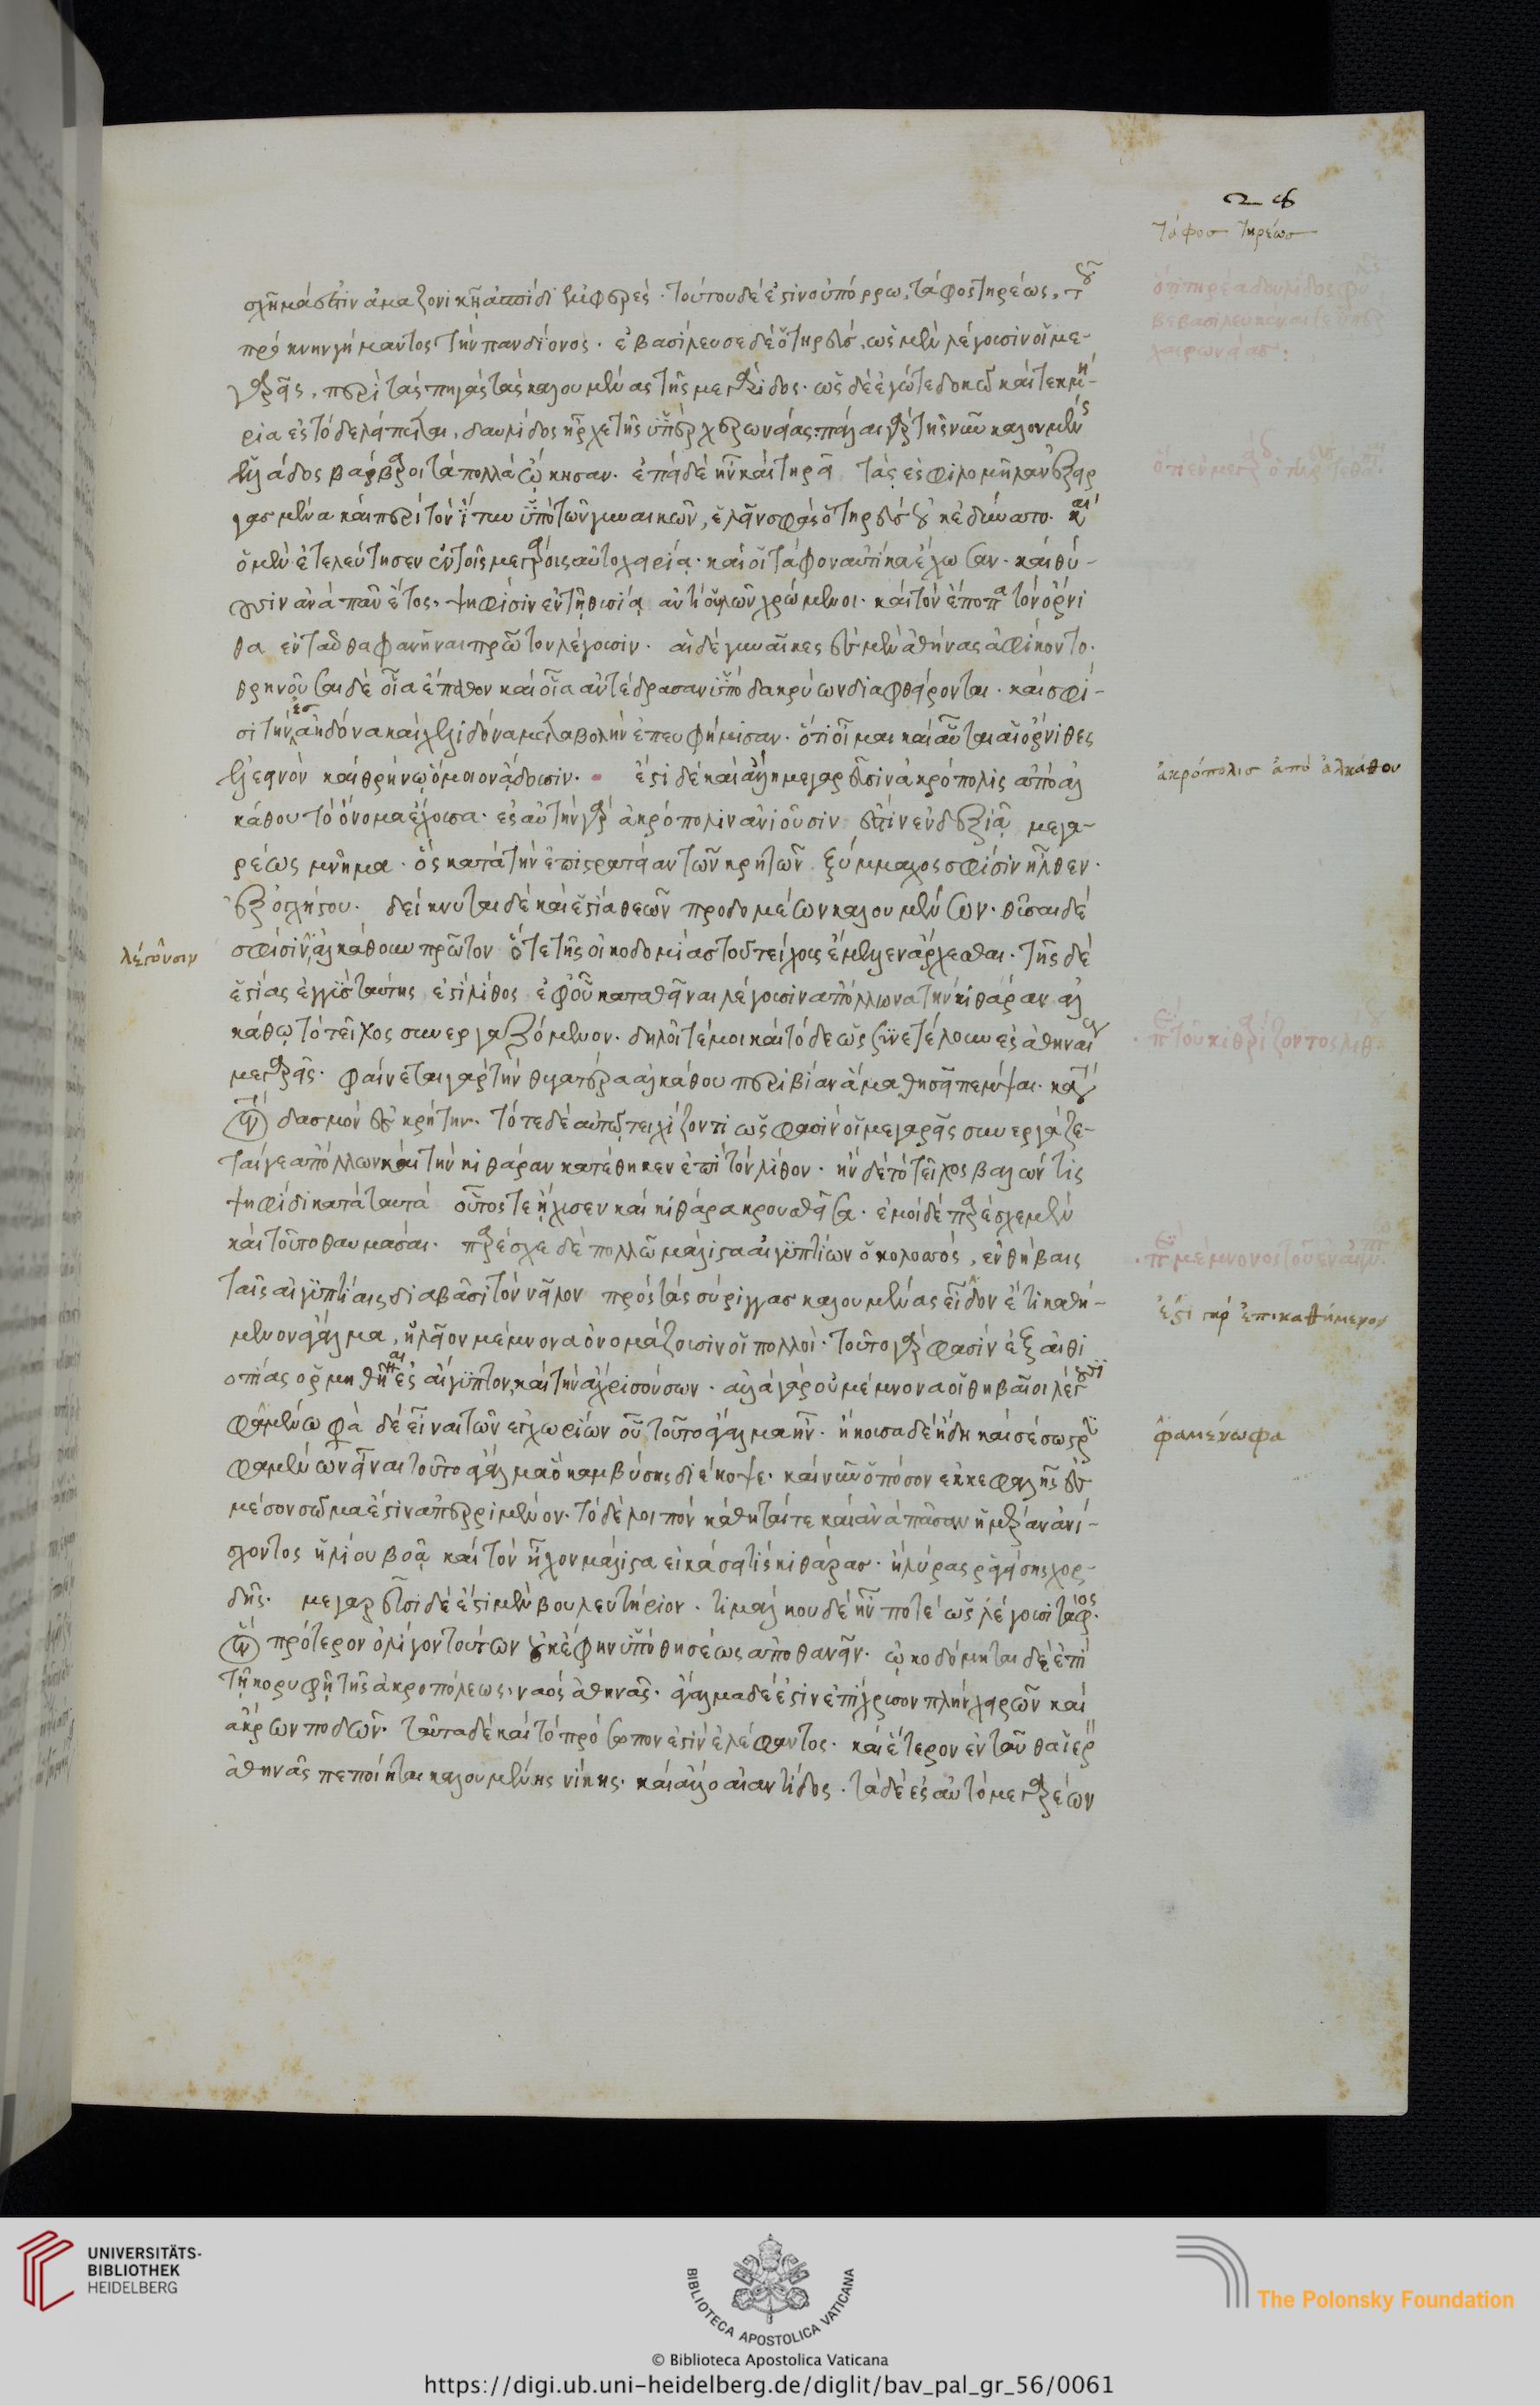 τάφοσ τηρέωσ
σχῆμά ἐστιν ἀμαζονικῇ ἀσπίδι ἐμφερές. τούτου δέ ἐστιν οὐ πόρρω, τάφος τηρέως, τοῦ
πρόκνην γήμαντος τὴν πανδίονος. ἐβασίλευσε δὲ ὁ τηρεύς, ὡς μὲν λέγουσιν οἱ με-
γαρεῖς, περὶ τὰς πηγὰς τὰς καλουμένας τῆς μεγαρίδος. ὡς δὲ ἐγώ τε δοκῶ καὶ τεκμή-
ρια ἐς τόδε λείπεται, δαυλίδος ἦρχε τῆς ὑπὲρ χαιρωνείας. πάλαι γὰρ τῆς νῦν καλουμένης
ἑλλάδος βάρβαροι τὰ πολλὰ ᾤκησαν. ἐπεὶ δὲ ἦν καὶ τηρεῖ τὰς ἐς φιλομήλαν ἐξειρ
γασμένα καὶ περὶ τὸν ἴτυν ὑπὸ τῶν γυναικῶν, ἑλεῖν σφᾶς ὁ τηρεὺς οὐκ ἐδύνατο. καὶ
ὁ μὲν ἐτελεύτησεν ἐν τοῖς μεγάροις αὐτοχειρίᾳ. καὶ οἱ τάφον αὐτίκα ἔχωσαν. καὶ θύ-
ουσιν ἀνὰ πᾶν ἔτος, ψηφῖσιν ἐν τῇ θυσίᾳ ἀντὶ οὐλῶν χρώμενοι. καὶ τὸν ἔποπα τὸν ὄρνι
θα ἐνταῦθα φανῆναι πρῶτον λέγουσιν. αἱ δὲ γυναῖκες ἐς μὲν ἀθήνας ἀφίκοντο.
θρηνοῦσαι δὲ οἷα ἔπαθον καὶ οἷα ἀντέδρασαν ὑπὸ δακρύων διαφθείρονται. καὶ σφί-
σι τὴν ἐσ ἀηδόνα καὶ χελιδόνα μεταβολὴν ἐπευφήμισαν. ὅτι οἶμαι καὶ αὗται αἱ ὄρνιθες
ἐλεεινὸν καὶ θρήνῳ ὅμοιον ᾄδουσιν. ἔστι δὲ καὶ ἄλλη μεγαρεῦσιν ἀκρόπολις ἀπὸ ἀλ
ἀκρόπολισ ἀπό ἀλκάθου
κάθου τὸ ὄνομα ἔχουσα. ἐς αὐτὴν γὰρ ἀκρόπολιν ἀνιοῦσιν ἐστὶν ἐν δεξιᾷ μεγα-
ρέως μνῆμα. ὃς κατὰ τὴν ἐπιστρατείαν τῶν κρητῶν ξύμμαχος σφίσιν ἦλθεν.
ἐξ ὀγχήστου. δείκνυται δὲ καὶ ἑστία θεῶν προδομέων καλουμένων. θῦσαι δέ
σφίσιν ἀλκάθουν πρῶτον ὅτε τῆς οἰκοδομίας τοῦ τείχους ἔμελλεν ἄρχεσθαι. τῆς δέ
λέγουσιν
ἑστίας ἐγγὺς ταύτης ἐστὶ λίθος ἐφ' οὗ καταθεῖναι λέγουσιν ἀπόλλωνα τὴν κιθάραν ἀλ
κάθῳ τὸ τεῖχος συνεργαζόμενον. δηλοῖ τέ μοι καὶ τόδε ὡς συνετέλουν ἐς ἀθηναίους
μεγαρεῖς. φαίνεται γὰρ τὴν θυγατέρα ἀλκάθου περίβοιαν ἅμα θησεῖ πέμψαι. κατὰ
τὸν δασμὸν ἐς κρήτην. τότε δὲ αὐτῷ τειχίζοντι ὥς φασιν οἱ μεγαρεῖς συνεργάζε-
ταί γε ἀπόλλων καὶ τὴν κιθάραν κατέθηκεν ἐπὶ τὸν λίθον. ἢν δὲ τὸ τεῖχος βαλών τις
ψηφίδι κατὰ ταυτά οὗτός τε ἤχησεν καὶ κιθάρα κρουσθεῖσα. ἐμοὶ δὲ παρέσχε μὲν
καὶ τοῦτο θαυμάσαι. παρέσχε δὲ πολλῷ μάλιστα αἰγυπτίων ὁ κολοσσός, ἐν θήβαις
ταῖς αἰγυπτίαις διαβᾶσι τὸν νεῖλον πρὸς τὰς σύριγγας καλουμένας εἶδον ἔτι καθή-
μενον ἄγαλμα, ἡλεῖον μέμνονα ὀνομάζουσιν οἱ πολλοί. τοῦτον γάρ φασιν ἐξ αἰθι
οπίας ὁρμηθῆναι ἐς αἴγυπτον, καὶ τὴν ἄχρι σούσων. ἀλλὰ γὰρ οὐ μέμνονα οἱ θηβαῖοι λέγουσι
φαμένωφα δὲ εἶναι τῶν ἐγχωρίων οὗ τοῦτο ἄγαλμα ἦν. ἤκουσα δὲ ἤδη καὶ σέσωστριν
φαμένων εἶναι τοῦτο ἄγαλμα ὃ καμβύσης διέκοψε. καὶ νῦν ὁπόσον ἐκ κεφαλῆς ἐς
φαμένωφα
μέσον σῶμα ἐστὶν ἀπερριμμένον. τὸ δὲ λοιπὸν κάθηταί τε καὶ ἀνὰ πᾶσαν ἡμέραν ἀνί-
σχοντος ἡλίου βοᾷ καὶ τὸν ἦχον μάλιστα εἰκάσει τις κιθάρας. ἢ λύρας ῥαγείσης χορ-
δῆς. μεγαρεῦσι δέ ἐστι μὲν βουλευτήριον. τιμάλκου δὲ ἦν ποτε ὡς λέγουσι τάφος.
ὃν πρότερον ὀλίγον τούτων οὐκ ἔφην ὑπὸ θησέως ἀποθανεῖν. ᾠκοδόμηται δὲ ἐπὶ
τῇ κορυφῇ τῆς ἀκροπόλεως, ναὸς ἀθηνᾶς. ἄγαλμα δέ ἐστιν ἐπίχρυσον πλὴν χειρῶν καὶ
ἄκρων ποδῶν. ταῦτα δὲ καὶ τὸ πρόσωπον ἐστὶν ἐλέφαντος. καὶ ἕτερον ἐνταῦθα ἱερὸν
ἀθηνᾶς πεποίηται καλουμένης νίκης. καὶ ἄλλο αἰαντίδος. τὰ δὲ ἐς αὐτὸ μεγαρέων
UNIVERSITÄTS-
BIBLIOTHEK
HEIDELBERG
BIBLIOTECA APOSTOLICA VATICANA
The Polonsky Foundation
© Biblioteca Apostolica Vaticana
https://digi.ub.uni-heidelberg.de/diglit/bav_pal_gr_56/0061